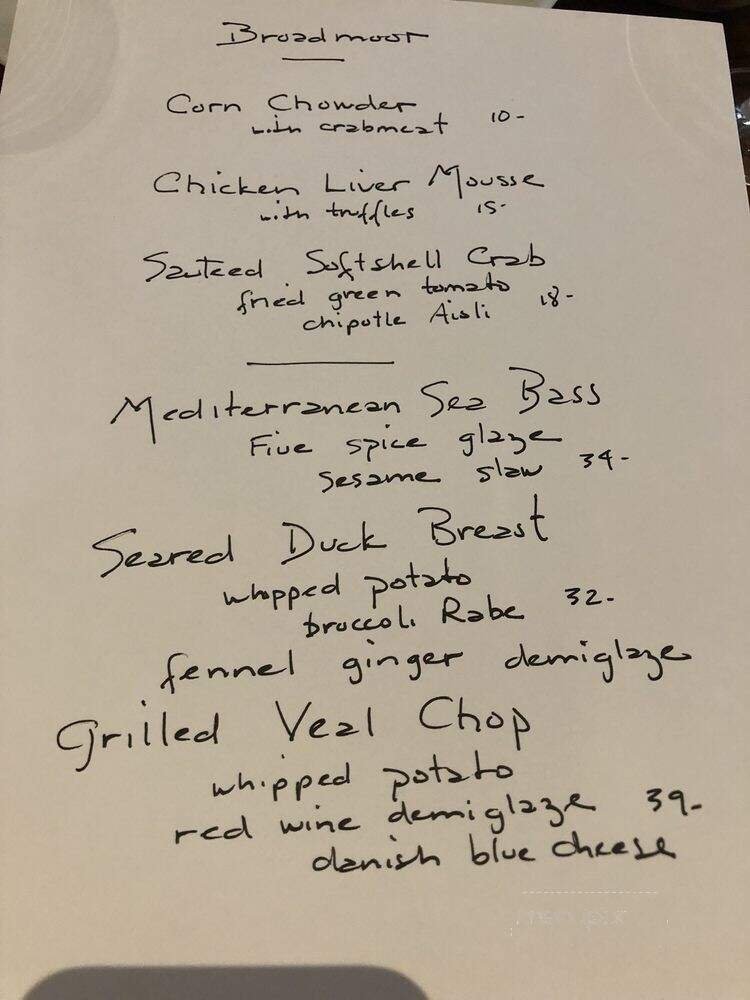 Broadmoor
Corn Chowder
with crabmeat 10-
Chicken Liver Mousse
with truffles 15-
Sauteed Softshell Crab
fried green tomato
chipotle Aioli 18-
Mediterranean Sea Bass
Five spice glaze
sesame slaw 34-
Seared Duck Breast
whipped potato
broccoli Rabe 32-
fennel ginger demiglaze
Grilled Veal Chop
whipped potato
red wine demiglaze 39-
danish blue cheese